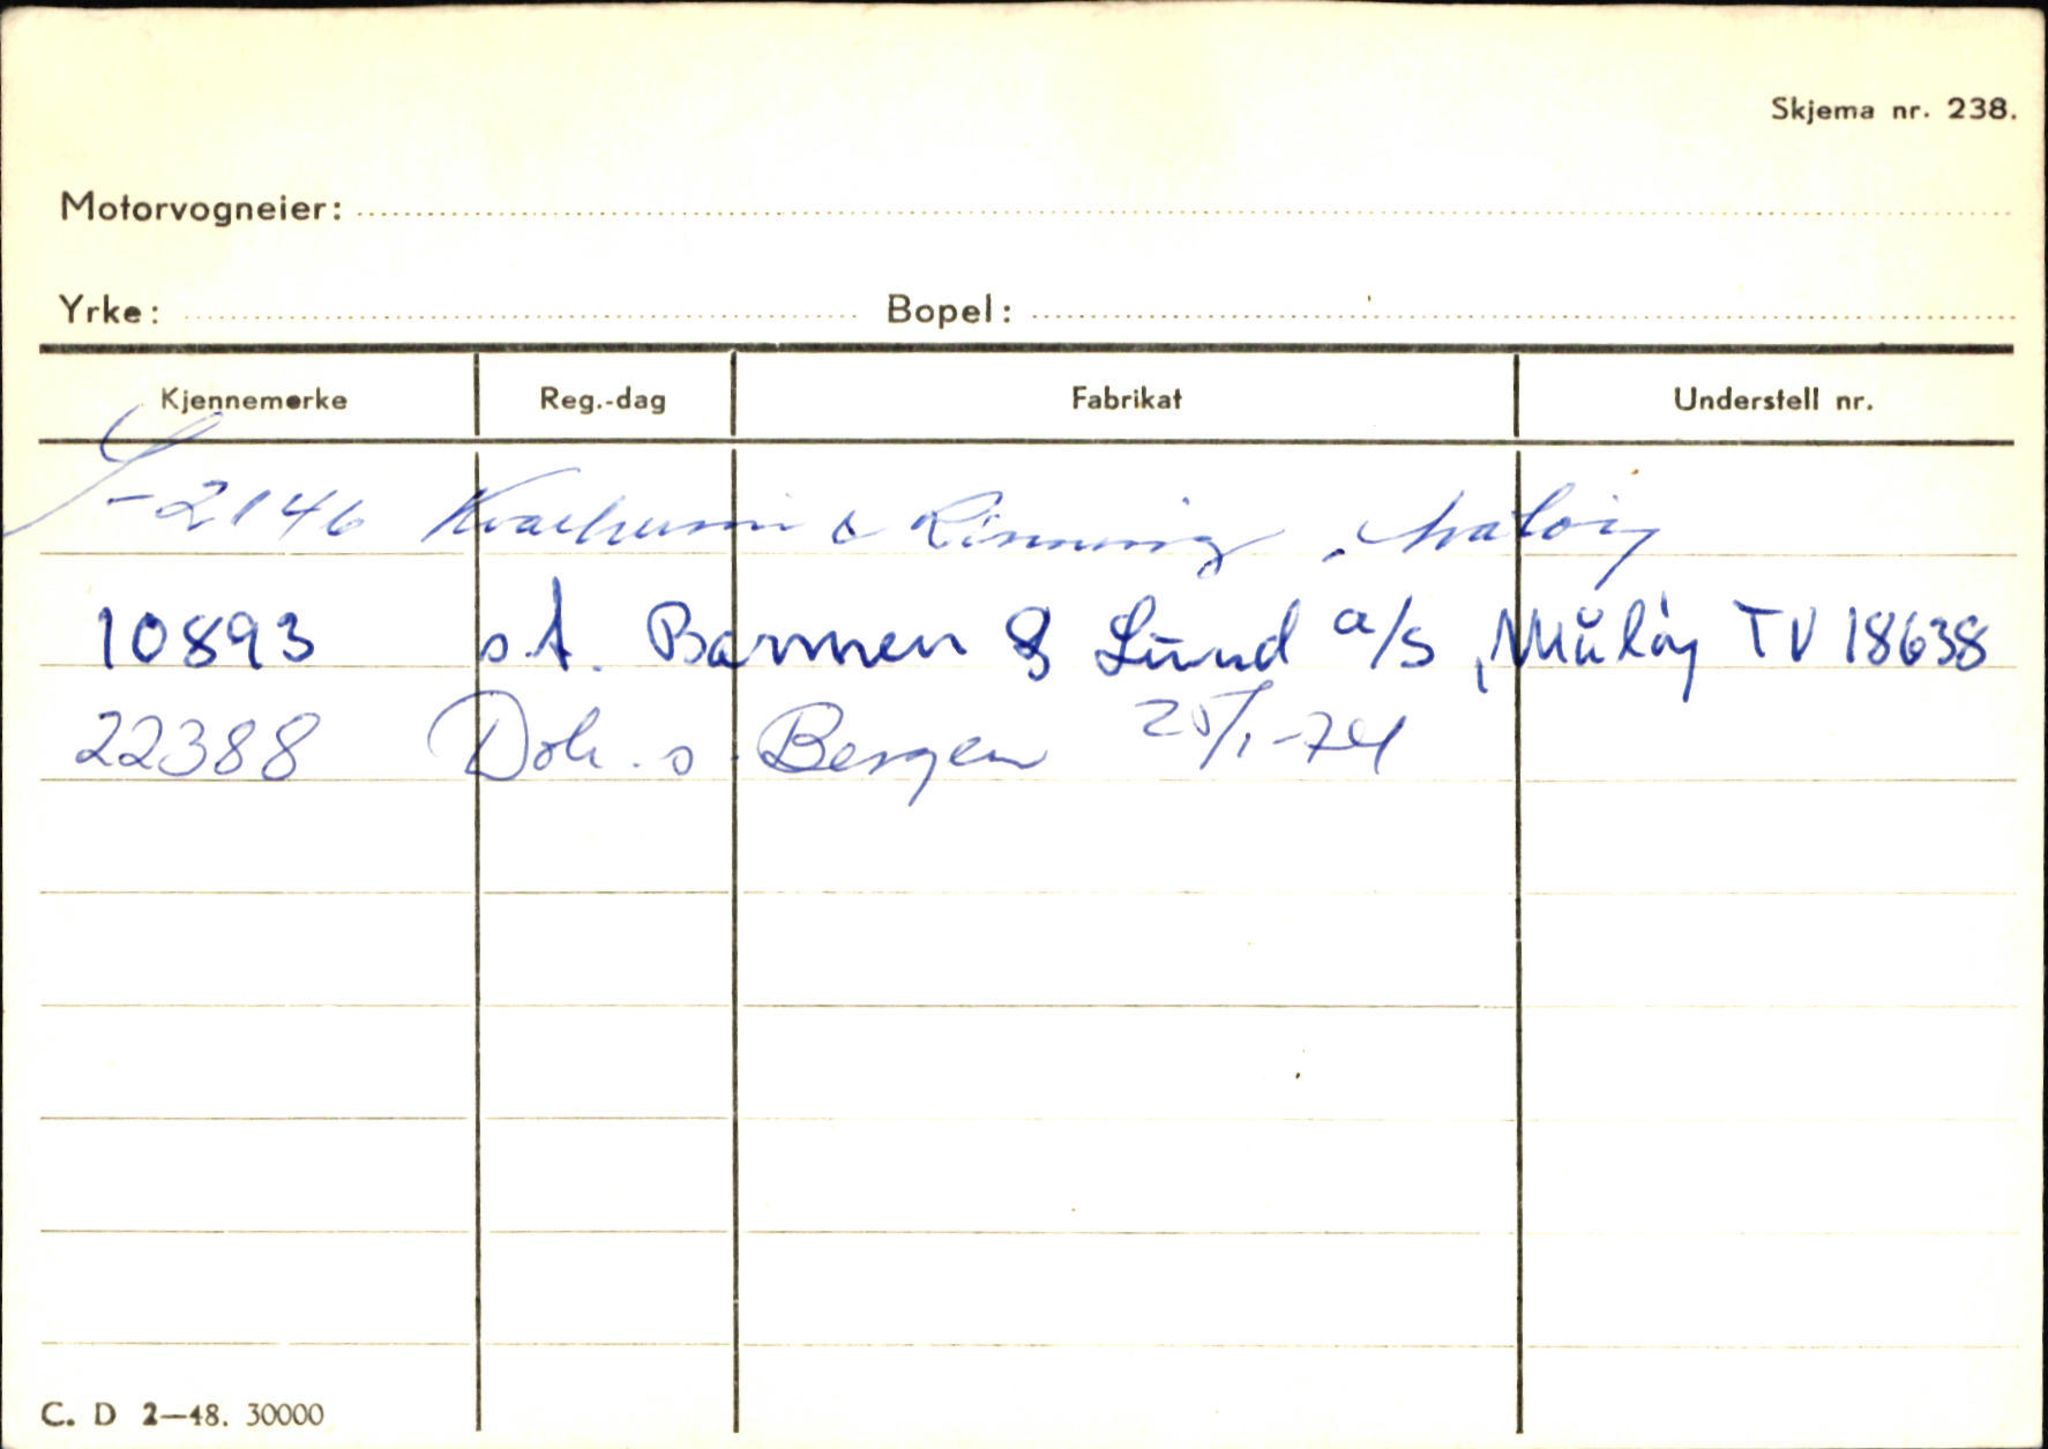 Skjema nr. 238.
Motorvogneier:
Yrke: Bopel:
Kjennemerke Reg.-dag Fabrikat Understell nr.
S-2146 & Rimming, Måløy
10893 s.A. Barmen & Lund a/s, Måløy TV 18638
22388 Dok. s. Bergen 25/1-74
C. D 2—48. 30000